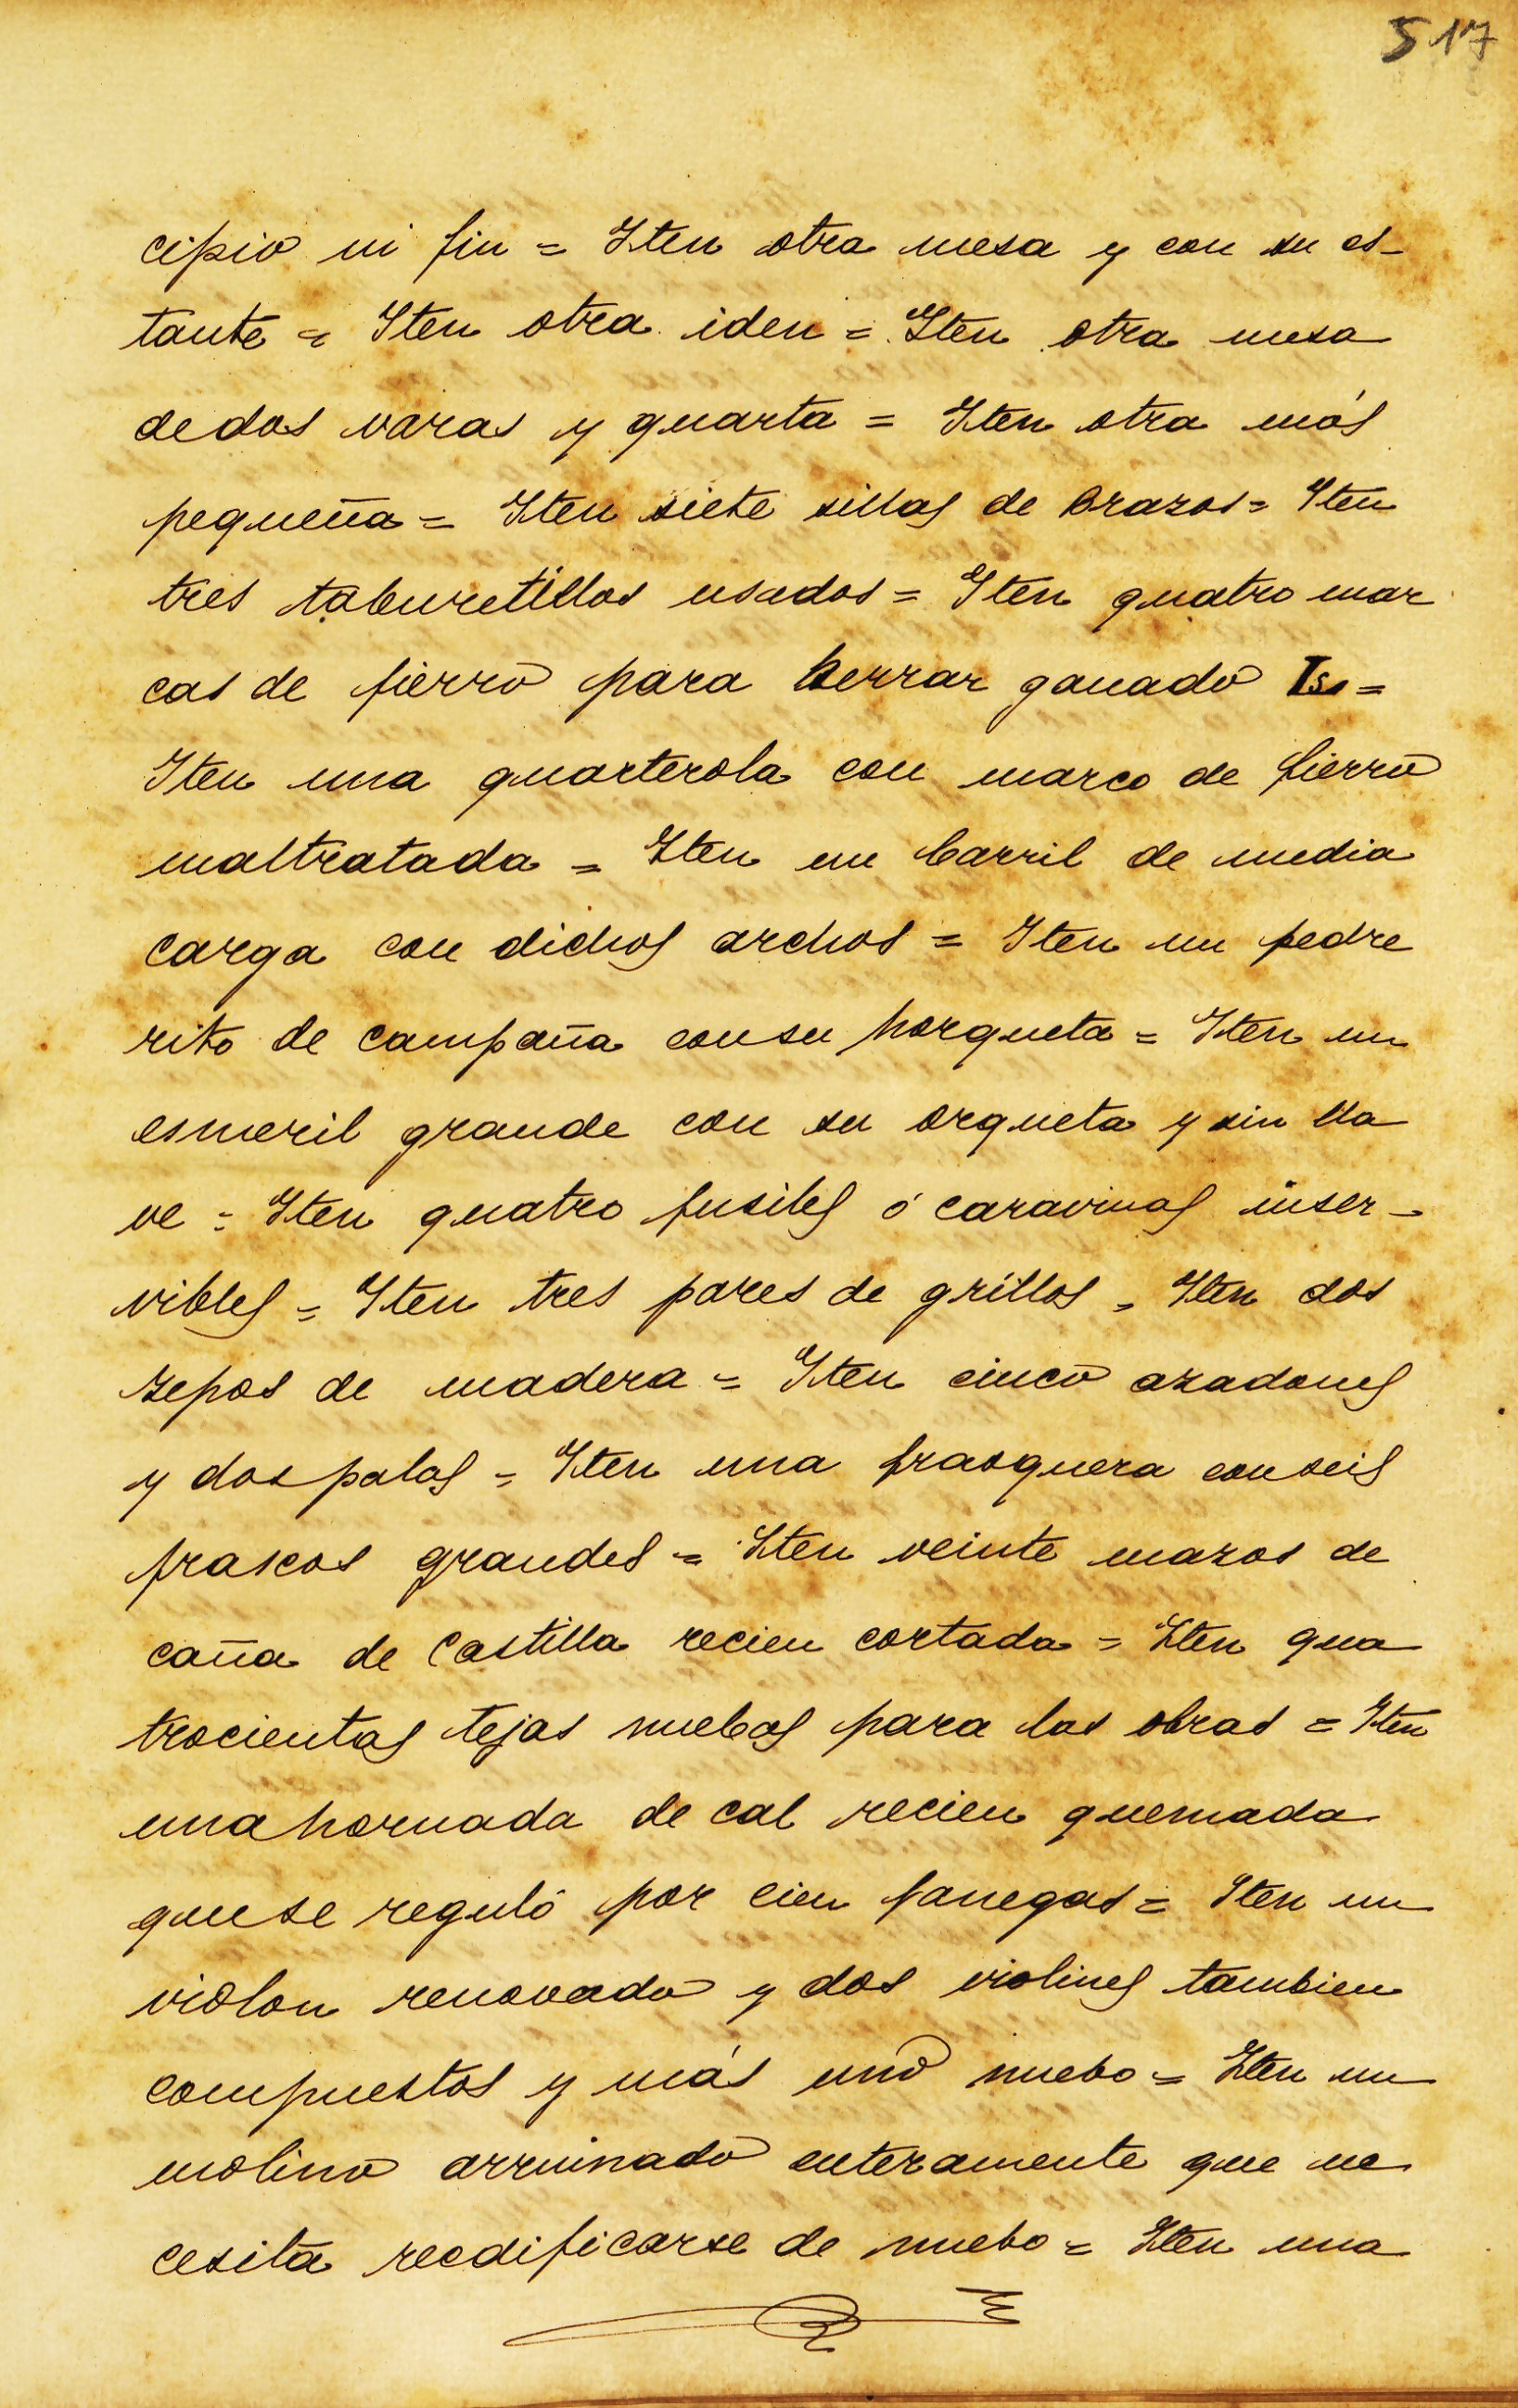 517
cipio ni fin = Iten otra mesa y con su es-
tante = Iten otra iden = Iten otra mesa
de dos varas y quarta = Iten otra más
pequeña = Iten siete sillas de brazos = Iten
tres taburetillos usados = Iten quatro mar
cas de fierro para herrar ganado =
Iten una quarterola con marco de fierro
maltratada = Iten un barril de media
carga con dichos archos = Iten un pedre
rito de campaña con su horqueta = Iten un
esmeril grande con su orqueta y sin lla
ve = Iten quatro fusiles ó caravinas inser-
vibles = Iten tres pares de grillos = Iten dos
zepos de madera = Iten cinco azadones
y dos palas = Iten una frasquera con seis
frascos grandes = Iten veinte mazos de
caña de Castilla recien cortada = Iten qua
trocientas tejas nuebas para las obras = Iten
una hornada de cal recien quemada
que se reguló por cien fanegas = Iten un
violon renovado y dos violines tambien
compuestos y más uno nuebo = Iten un
molino arruinado enteramente que ne
cesita reedificarse de nuebo = Iten una